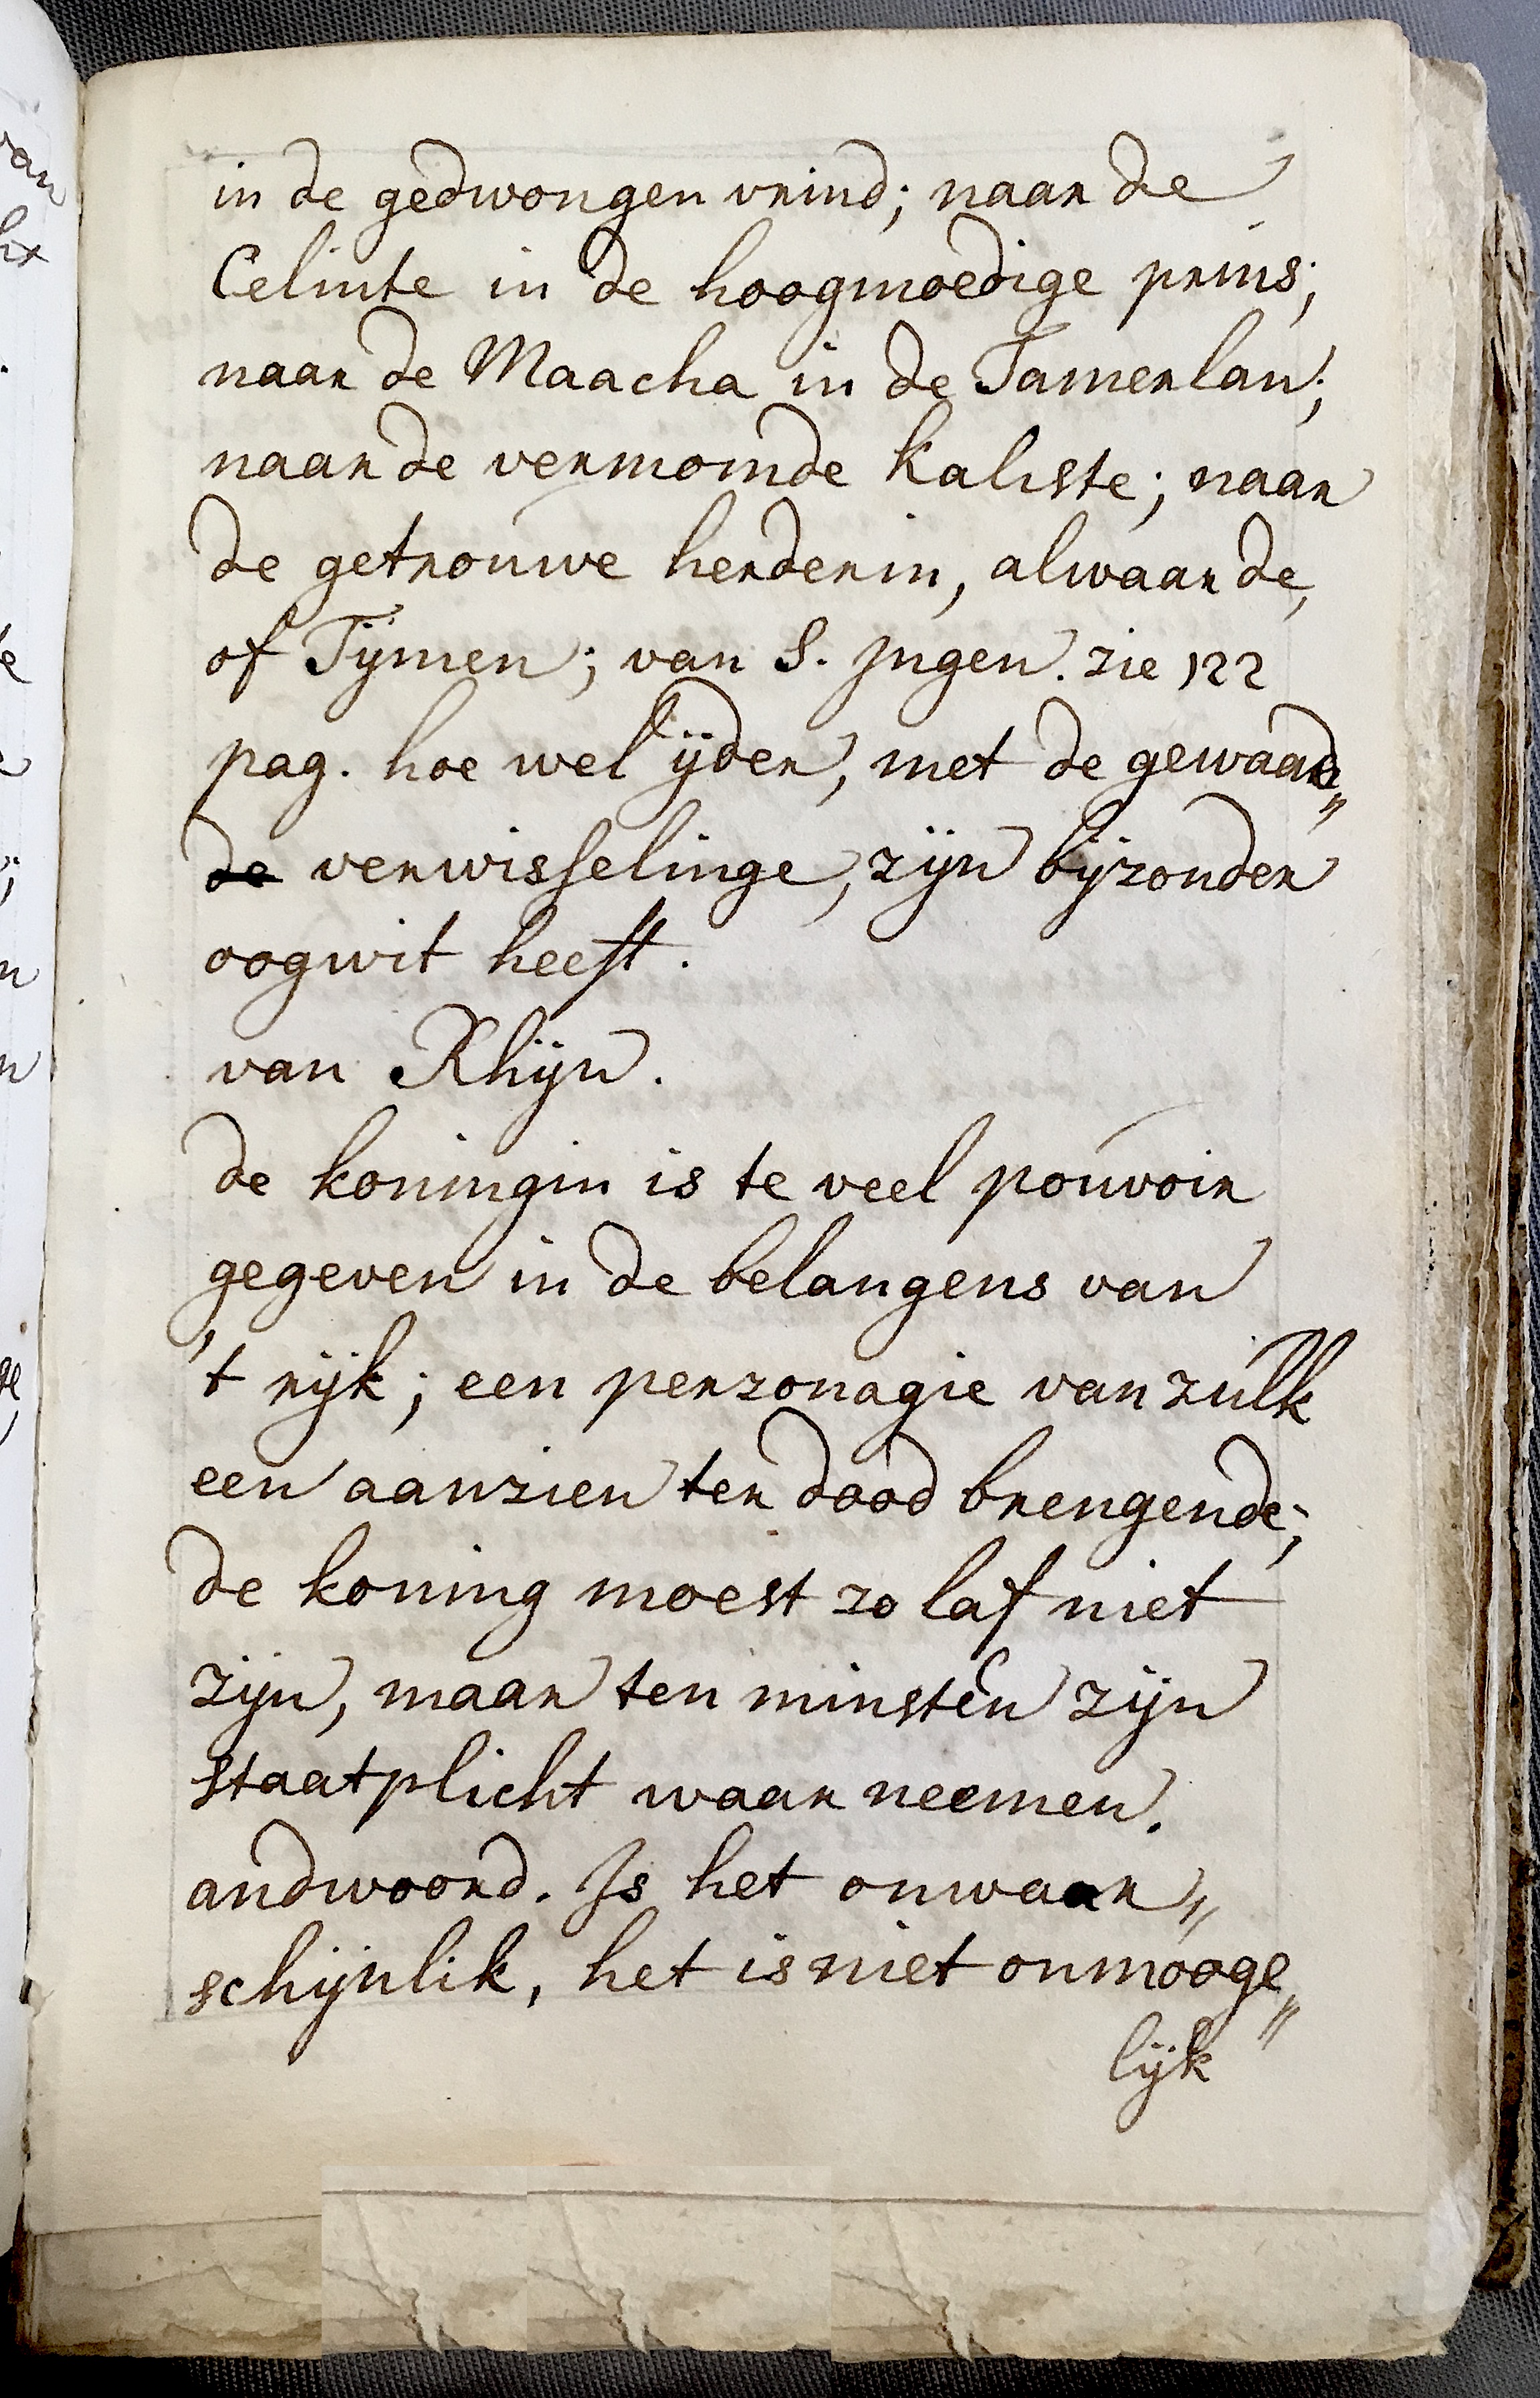 in de gedwongen vrind; naar de
Celinte in de hoogmoedige prins;
naar de Maacha in de Tamerlan;
naar de vermomde kaliste; naar
de getrouwe herderin, alwaar de,
of Tÿmen; van S. Jngen. zie 122
pag. hoe wel ÿder, met de gewaad„
de verwisselinge, zÿn bÿzonder
oogwit heeft.
van Rhÿn.
de koningin is te veel pouvoir
gegeven in de belangens van
't rÿk; een perzonagie van zulk
een aanzien ter dood brengende;
de koning moest zo laf niet
zÿn, maar ten minsten zÿn
staatplicht waarneemen.
andwoord. Is het onwaar„
schÿnlik, het is niet onmooge„
lÿk